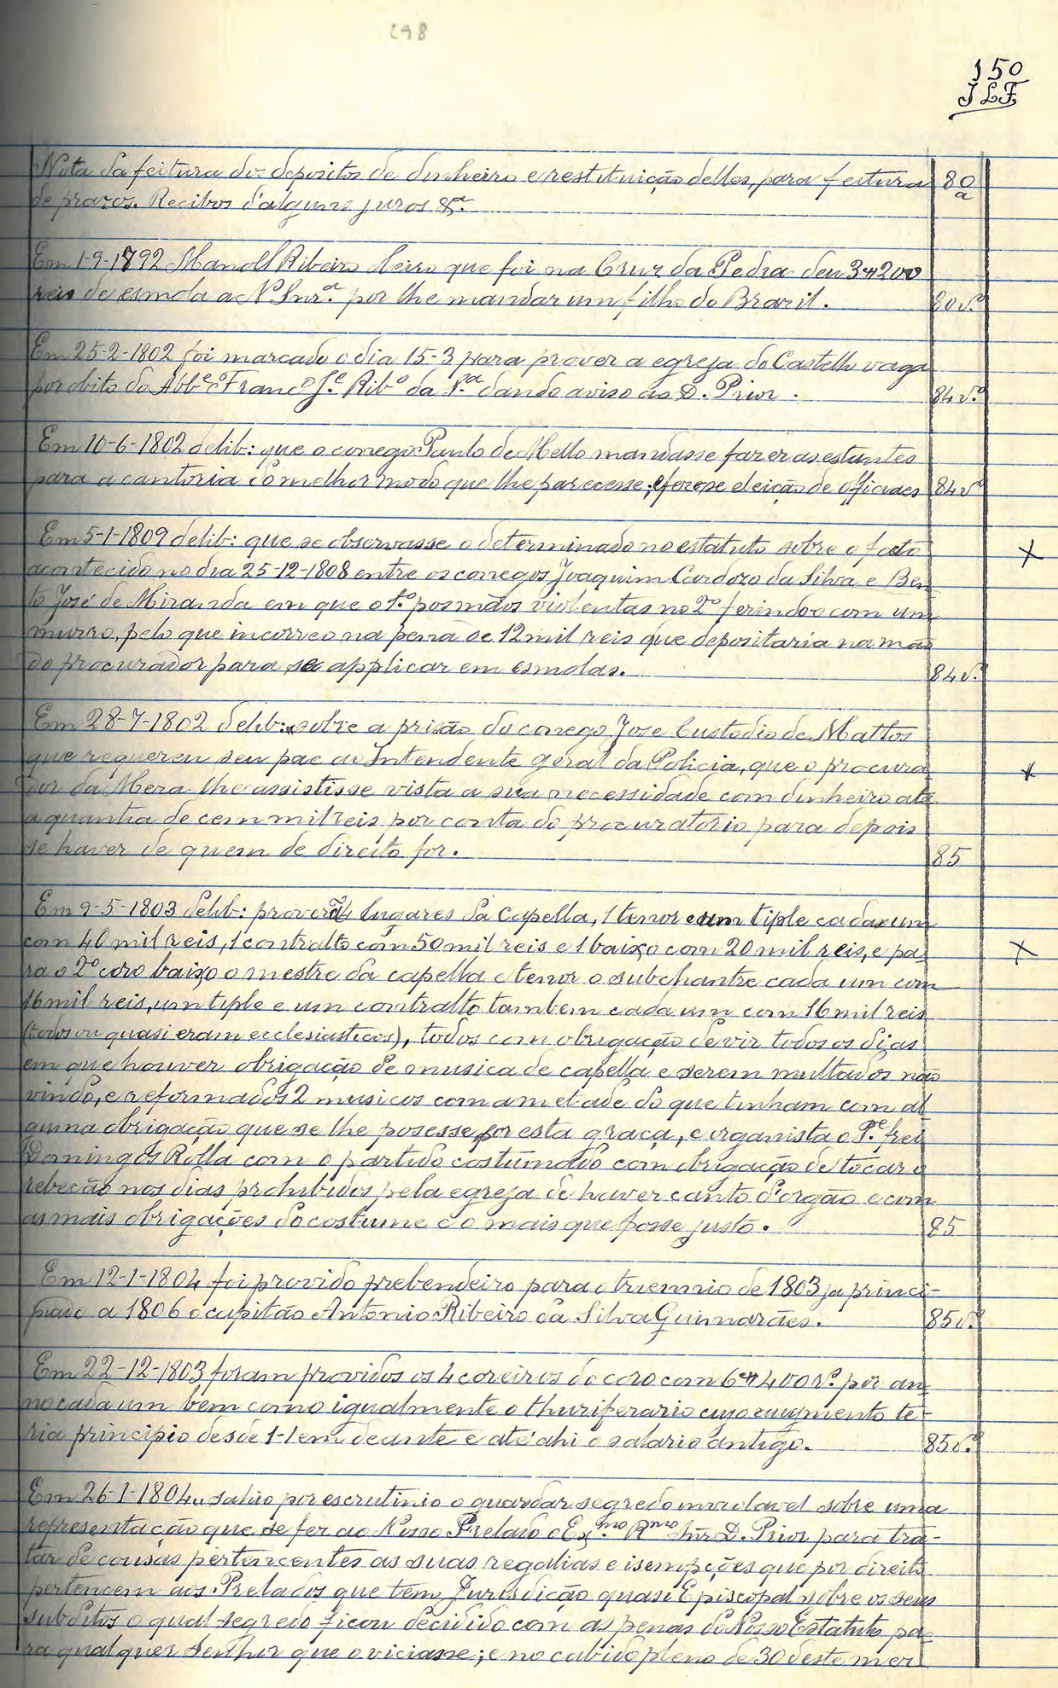 198
150
JLF
Nota da feitura dos depositos de dinheiro e restituição delles, para feitura 80
de prazos. Recibos d'alguns juros &ª. a
Em 1-9-1792 Manoel Ribeiro leiro que foi na Cruz da Pedra deu 3$200
reis de esmola a Nª Snrª. por lhe mandar um filho do Brazil. 80vº
Em 25-2-1802 foi marcado o dia 15-3 para prover a egreja do Castello vaga
por obito do Abbᵉ Francº Jᵉ. Ribº da Sª dando aviso ao D. Prior. 84vº
Em 10-6-1802 delib: que o conego Paulo de Mello mandasse fazer as estantes
para a cantoria do melhor modo que lhe parecesse; fez-se eleição de officiaes 84vº
Em 5-1-1809 delib: que se observasse o determinado no estatuto sobre o facto
acontecido no dia 25-12-1808 entre os conegos Joaquim Cardozo da Silva e Ben-
to José de Miranda em que o 1º. pos mãos violentas no 2º ferindo-o com um
murro, pelo que incorreo na pena de 12 mil reis que depositaria na mão
do procurador para se applicar em esmolas. 84vº
Em 28-7-1802 delib: sobre a prisão do conego Jose Custodio de Mattos
que requereu seu pae ao Intendente geral da Policia, que o procura
dor da Meza lhe assistisse vista a sua necessidade com dinheiro até
a quantia de cem mil reis por conta do procuratorio para depois
se haver de quem de direito for. 85
Em 9-5-1803 delib: prover 4 lugares da Capella, 1 tenor e um tiple cada um
com 40 mil reis, 1 contralto com 50 mil reis e 1 baixo com 20 mil reis, e pa-
ra o 2º coro baixo o mestre da capella e tenor o subchantre cada um com
16 mil reis, um tiple e um contralto tambem cada um com 16 mil reis
(todos ou quasi eram ecclesiasticos), todos com obrigação de vir todos os dias
em que houver obrigação de musica de capella e serem multados não
vindo, e reformados 2 musicos com ametade do que tinham com al
guma obrigação que se lhe posesse por esta graça, e organista o Pᵉ. frei
Domingos Rolla com o partido costumado com obrigação de tocar o
rebecão nos dias prohibidos pela egreja de haver canto d'orgão e com
as mais obrigações do costume e o mais que fosse justo. 85
Em 12-1-1804 foi provido prebendeiro para o triennio de 1803 ja princi-
piado a 1806 o capitão Antonio Ribeiro da Silva Guimarães. 85vº
Em 22-12-1803 foram providos os 4 coreiros do coro com 6$400 rº. por an
no cada um bem como igualmente o thuriferario cujo augmento te-
ria principio desde 1-1 em deante e até ahi o salario antigo. 85vº
Em 26-1-1804 sahio por escrutinio o guardar segredo inviolavel sobre uma
representação que se fez ao Nosso Prelado o Exᵐº Rᵐº Snr D. Prior para tra-
tar de cousas pertencentes as suas regalias e isempções que por direito
pertencem aos Prelados que tem Jurisdicção quasi Episcopal sobre os seus
subditos o qual segredo ficou decidido com as penas do Nosso Estatuto pa-
ra qualquer senhor que o viciasse; e no cabido pleno de 30 deste mez